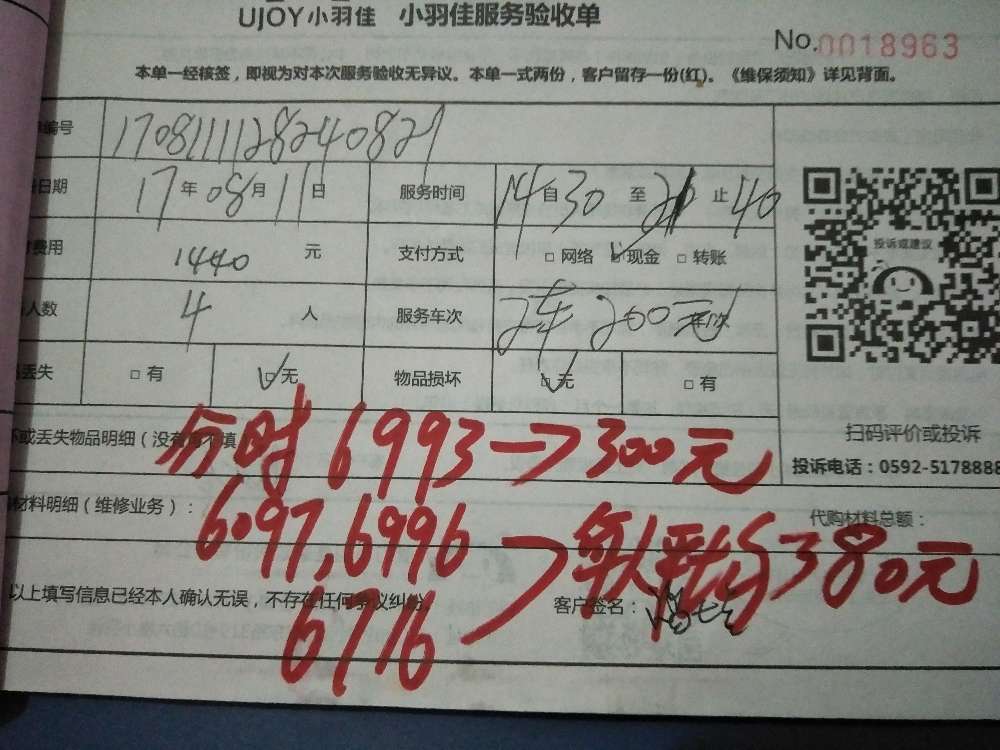 UJOY小羽佳 小羽佳服务验收单
No.0018963
本单一经核签，即视为对本次服务验收无异议。本单一式两份，客户留存一份(红)。《维保须知》详见背面。
编号 1708111128240821
日期 17年08月11日 服务时间 14自30至21止40
费用 1440 元 支付方式 □网络 ☑现金 □转账
投诉或建议
人数 4 人 服务车次 2车 200元/次
丢失 □有 ☑无 物品损坏 ☑无 □有
或丢失物品明细（没有 不填）
分时 6993→300元
扫码评价或投诉
投诉电话：0592-5178888
材料明细（维修业务）：
代购材料总额：
6097,6996
6776
每人平均380元
以上填写信息已经本人确认无误，不存在任何争议纠纷。
客户签名：